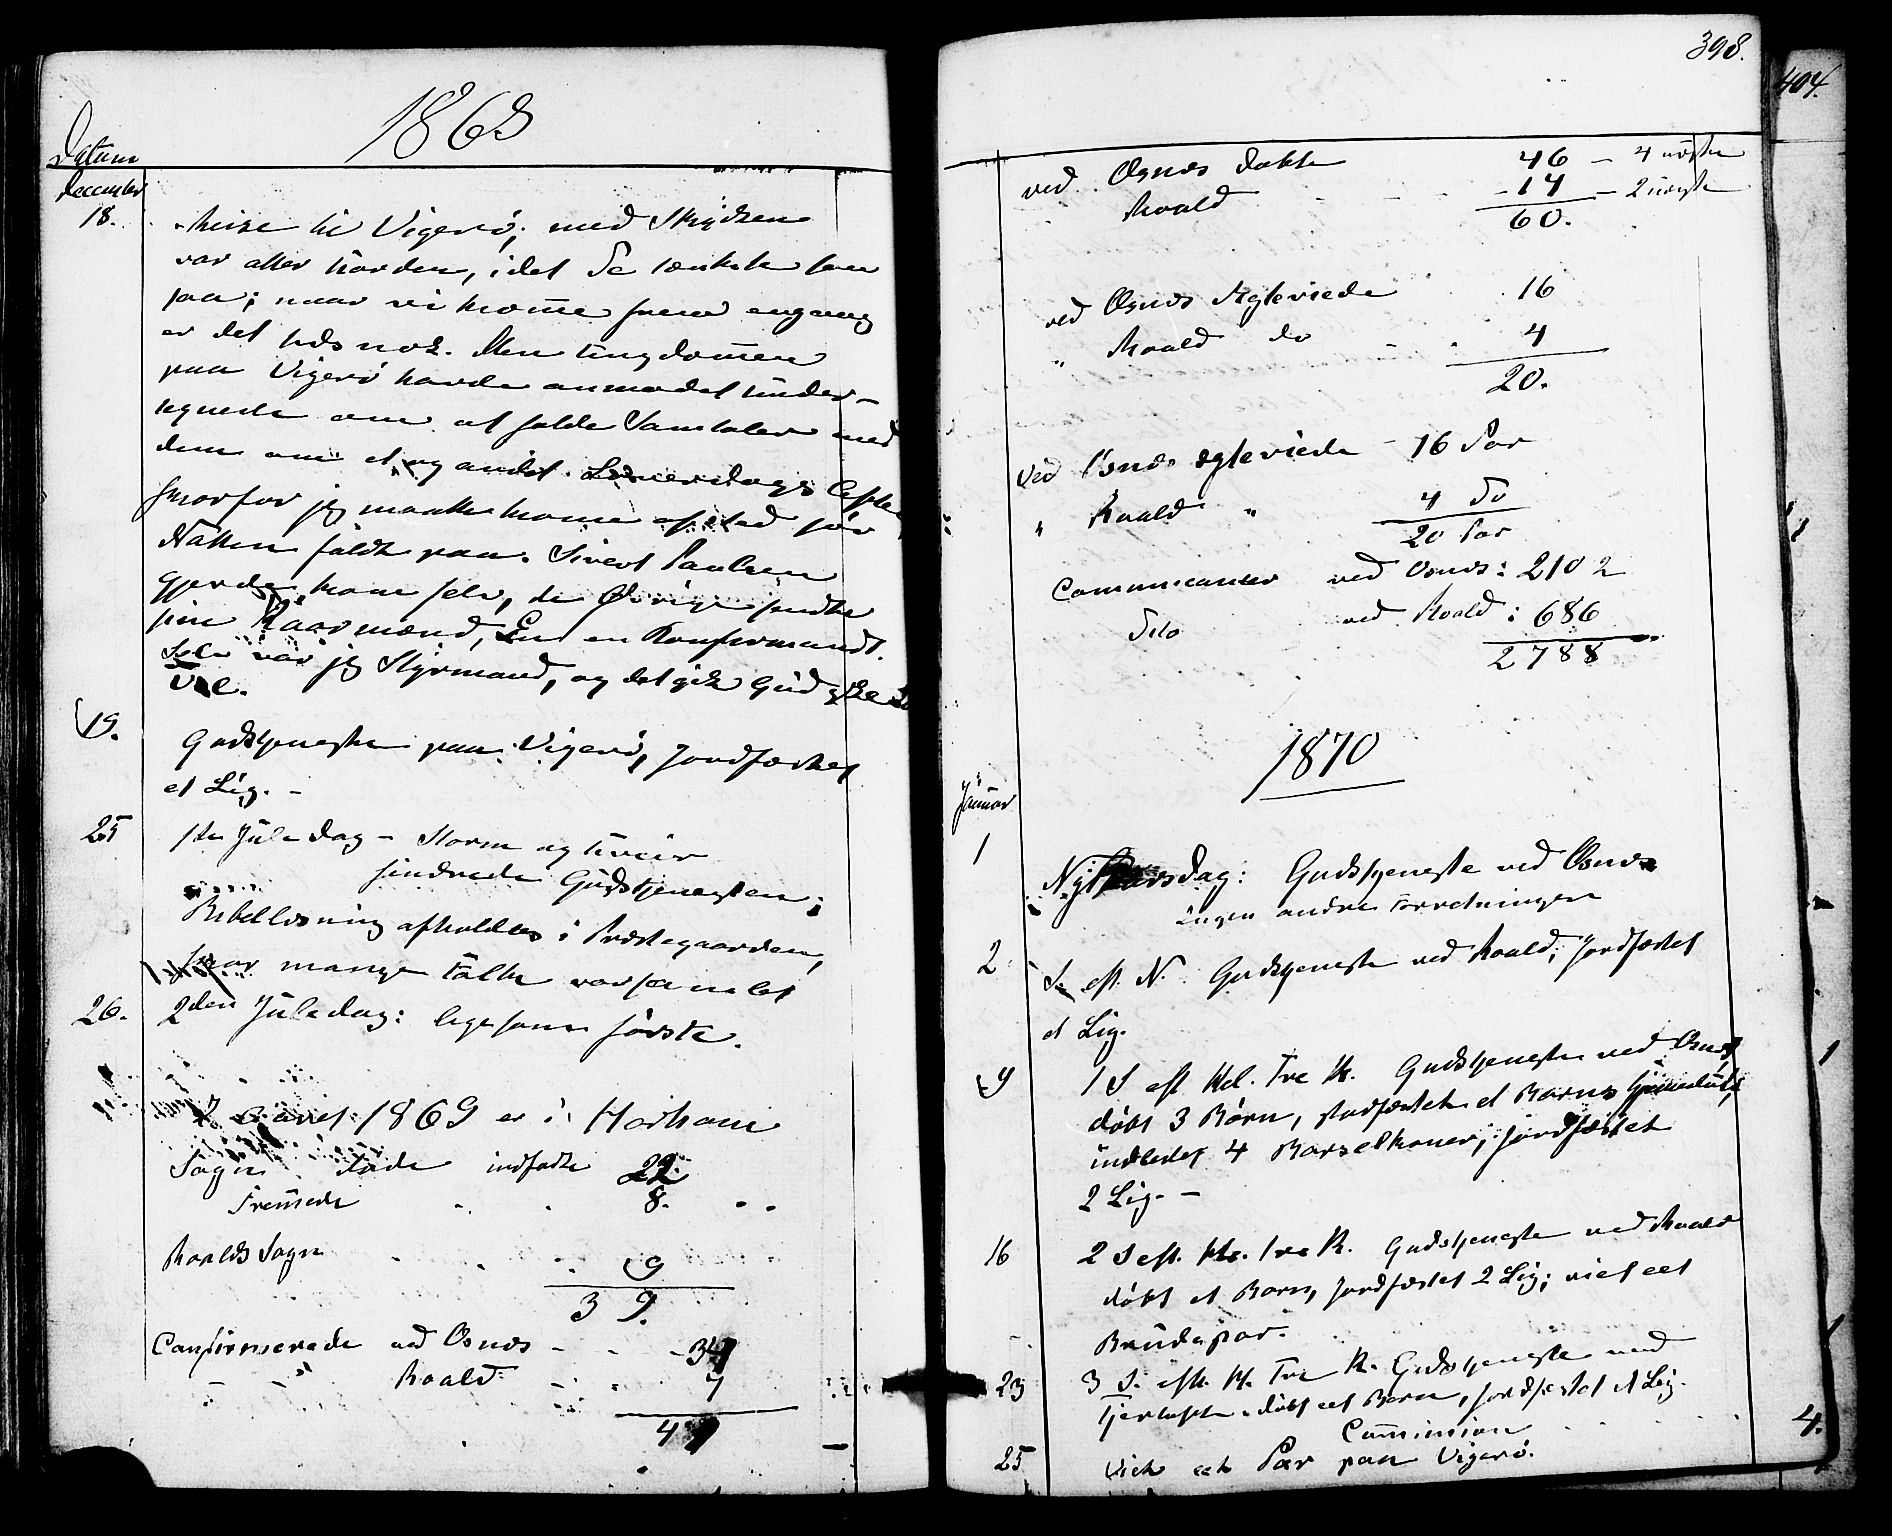 1869
Datum
December
18.
Reise til Vigerø; med Skydsen
var atter
paa; naar vi komme frem engang
er det tids nok. Men Ungdommen
paa Vigerø havde anmodet under-
tegnede om at holde Samtaler med
dem om et og andet Løverdags Eften
hvorfor jeg maatte komme afsted før
Natten faldt paa. Sivert Paulsen
Gjerde kom selv, de Øvrige sendte
sine Kaarmænd, En en Konfirmandt.
Selv var jeg Styrmand, og det gik Gud ske
Vel.
19.
Gudstjeneste paa Vigerø, Jordfæstet
et Lig. -
25
1ste Juledag - Storm og Uveir
hindrede Gudstjenesten;
Bibellæsning afholdtes i Præstegaarden,
hvor mange Folk var samlet
26.
2den Juledag: ligesom første.
I Aaret 1869 er i Harhams
Sogn døde indfødte 22.
Fremede 8.
Roalds Sogn 9
39.
Confirmerede ved Osnæs - 34
" " Roald 7
41
398.
404.
ved Osnæs døbte 46 - 4 uægte
Roald - 14 - 2 uægte
60.
ved Osnæs Ægteviede 16
" Roald do 4
20.
Ved Osnæs ægteviede - 16 Par
" Roald " 4 Do
20 Par
Communicanter ved Osnæs: 2102
Dito ved Roald: 686
2788
1870
Januar
1
Nytaarsdag: Gudstjeneste ved Osnæs
Ingen andre Forretninger
2
S. eft. N. Gudstjeneste ved Roald; Jordfæstet
et Lig.
9
1 S eft. Hel. Tre K. Gudstjeneste ved Osnæs
døbt 3 Børn, stadfæstet et Barns Hjemmedaab,
indledet 4 Barselkoner; jordfæstet
2 Lig. -
16
2 S eft. H. Tre K. Gudstjeneste ved Roald
døbt et Barn, Jordfæstet 2 Lig; viet eet
Brudepar.
23
3 S. eft. H. Tre K. Gudstjeneste ved
døbt eet Barn, jordfæstet et Lig.
Communion
25
Viet eet Par paa Vigerø.
4.